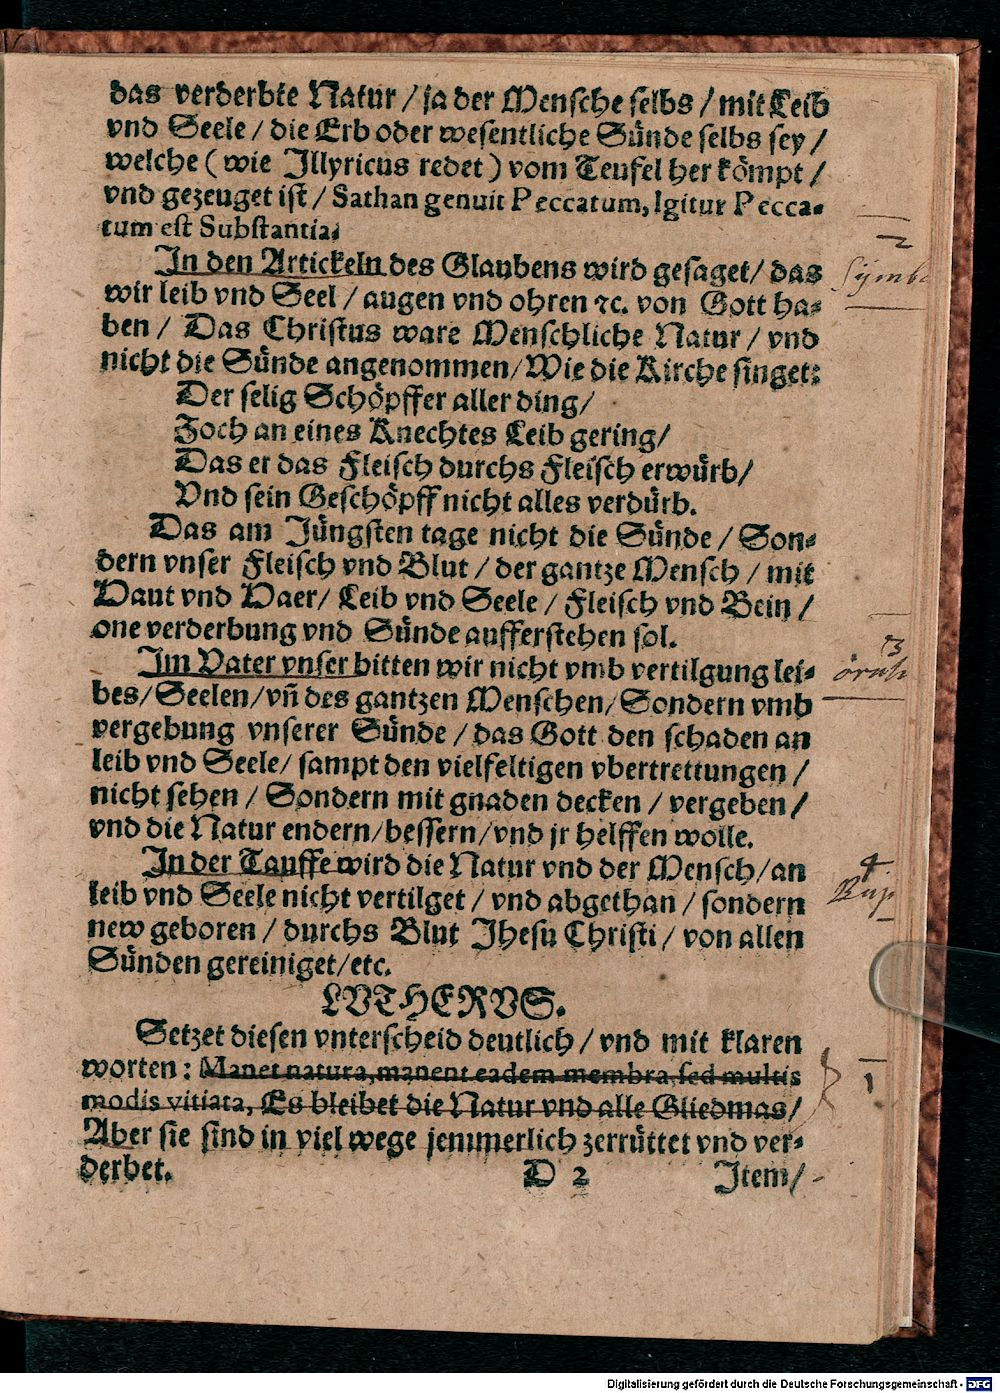 das verderbte Natur / ja der Mensche selbs / mit Leib
vnd Seele / die Erb oder wesentliche Sünde selbs sey /
welche ( wie Illyricus redet ) vom Teufel her kömpt /
vnd gezeuget ist / Sathan genuit Peccatum, Igitur Pecca-
tum est Substantia.
In den Artickeln des Glaubens wird gesaget / das
wir leib vnd Seel / augen vnd ohren ꝛc. von Gott ha-
ben / Das Christus ware Menschliche Natur / vnd
nicht die Sünde angenommen / Wie die Kirche singet:
Der selig Schöpffer aller ding /
Zoch an eines Knechtes Leib gering /
Das er das Fleisch durchs Fleisch erwürb /
Vnd sein Geschöpff nicht alles verdürb.
Das am Jüngsten tage nicht die Sünde / Son-
dern vnser Fleisch vnd Blut / der gantze Mensch / mit
Haut vnd Haer / Leib vnd Seele / Fleisch vnd Bein /
one verderbung vnd Sünde aufferstehen sol.
Im Vater vnser bitten wir nicht vmb vertilgung lei-
bes / Seelen / vn̄ des gantzen Menschen / Sondern vmb
vergebung vnserer Sünde / das Gott den schaden an
leib vnd Seele / sampt den vielfeltigen vbertrettungen /
nicht sehen / Sondern mit gnaden decken / vergeben /
vnd die Natur endern / bessern / vnd jr helffen wolle.
In der Tauffe wird die Natur vnd der Mensch / an
leib vnd Seele nicht vertilget / vnd abgethan / sondern
new geboren / durchs Blut Jhesu Christi / von allen
Sünden gereiniget / etc.
LVTHERVS.
Setzet diesen vnterscheid deutlich / vnd mit klaren
worten : Manet natura, manent eadem membra, sed multis
modis vitiata, Es bleibet die Natur vnd alle Gliedmas /
Aber sie sind in viel wege jemmerlich zerrüttet vnd ver-
derbet.
D 2
Item /
2
Symb
3
4
1
Digitalisierung gefördert durch die Deutsche Forschungsgemeinschaft - DFG